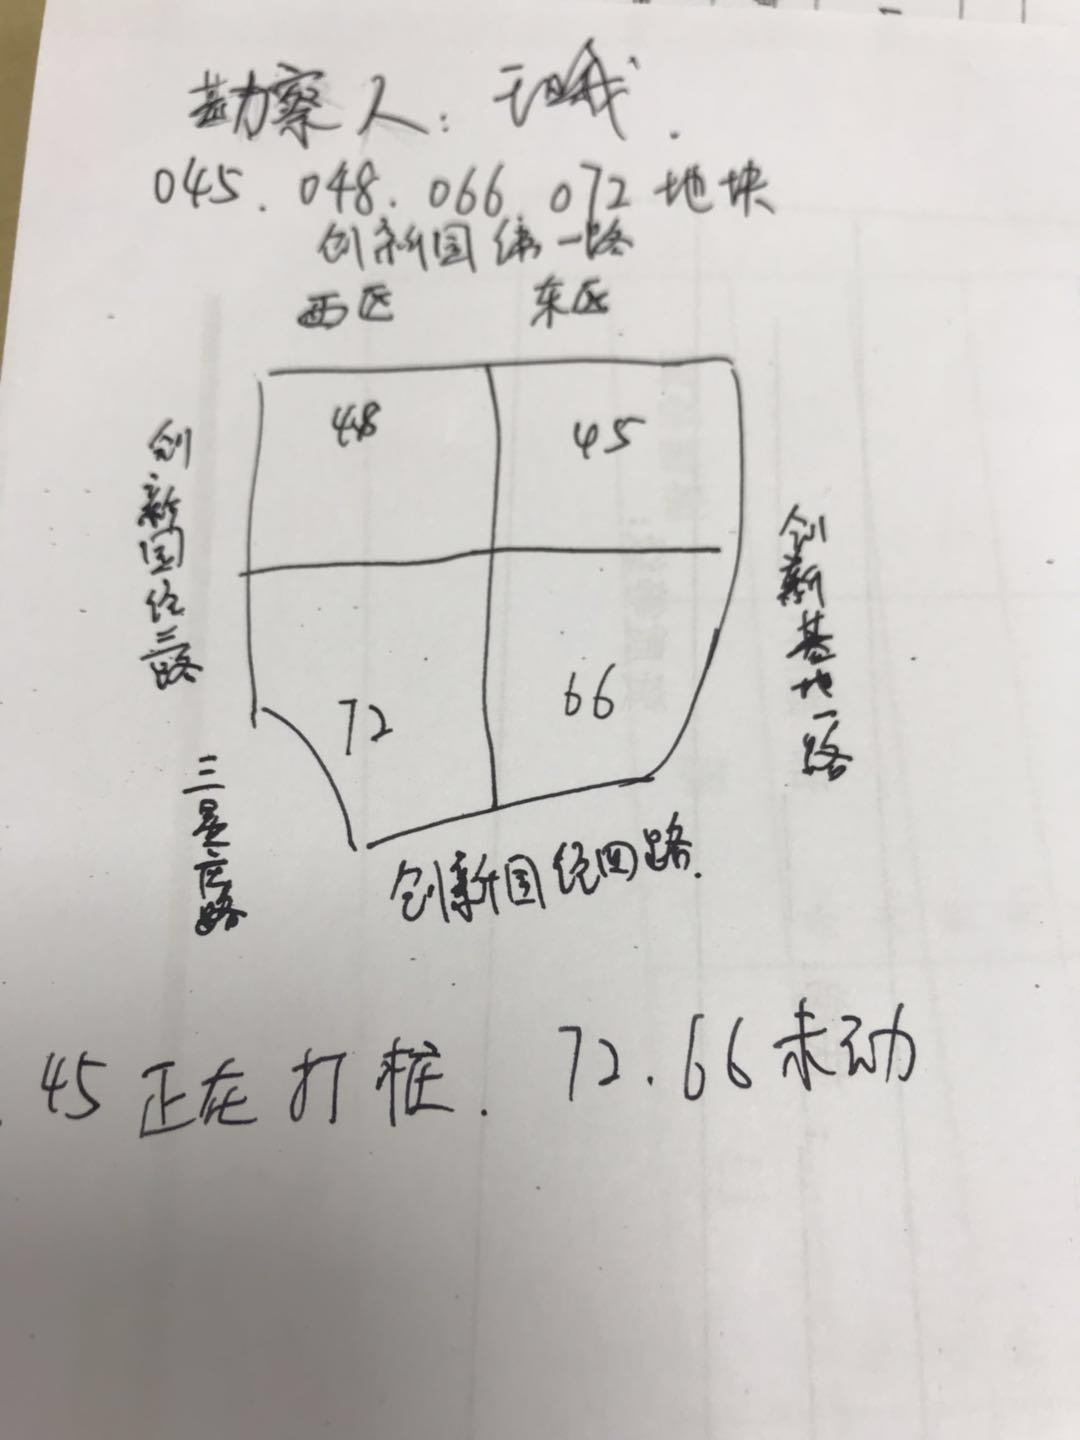 勘察人:
045. 048. 066. 072 地块
创新园纬一路
西区 东区
48 45
创新园经三路
创新基地一路
72 66
三景庄路
创新园经四路.
45 正在打桩. 72. 66 未动